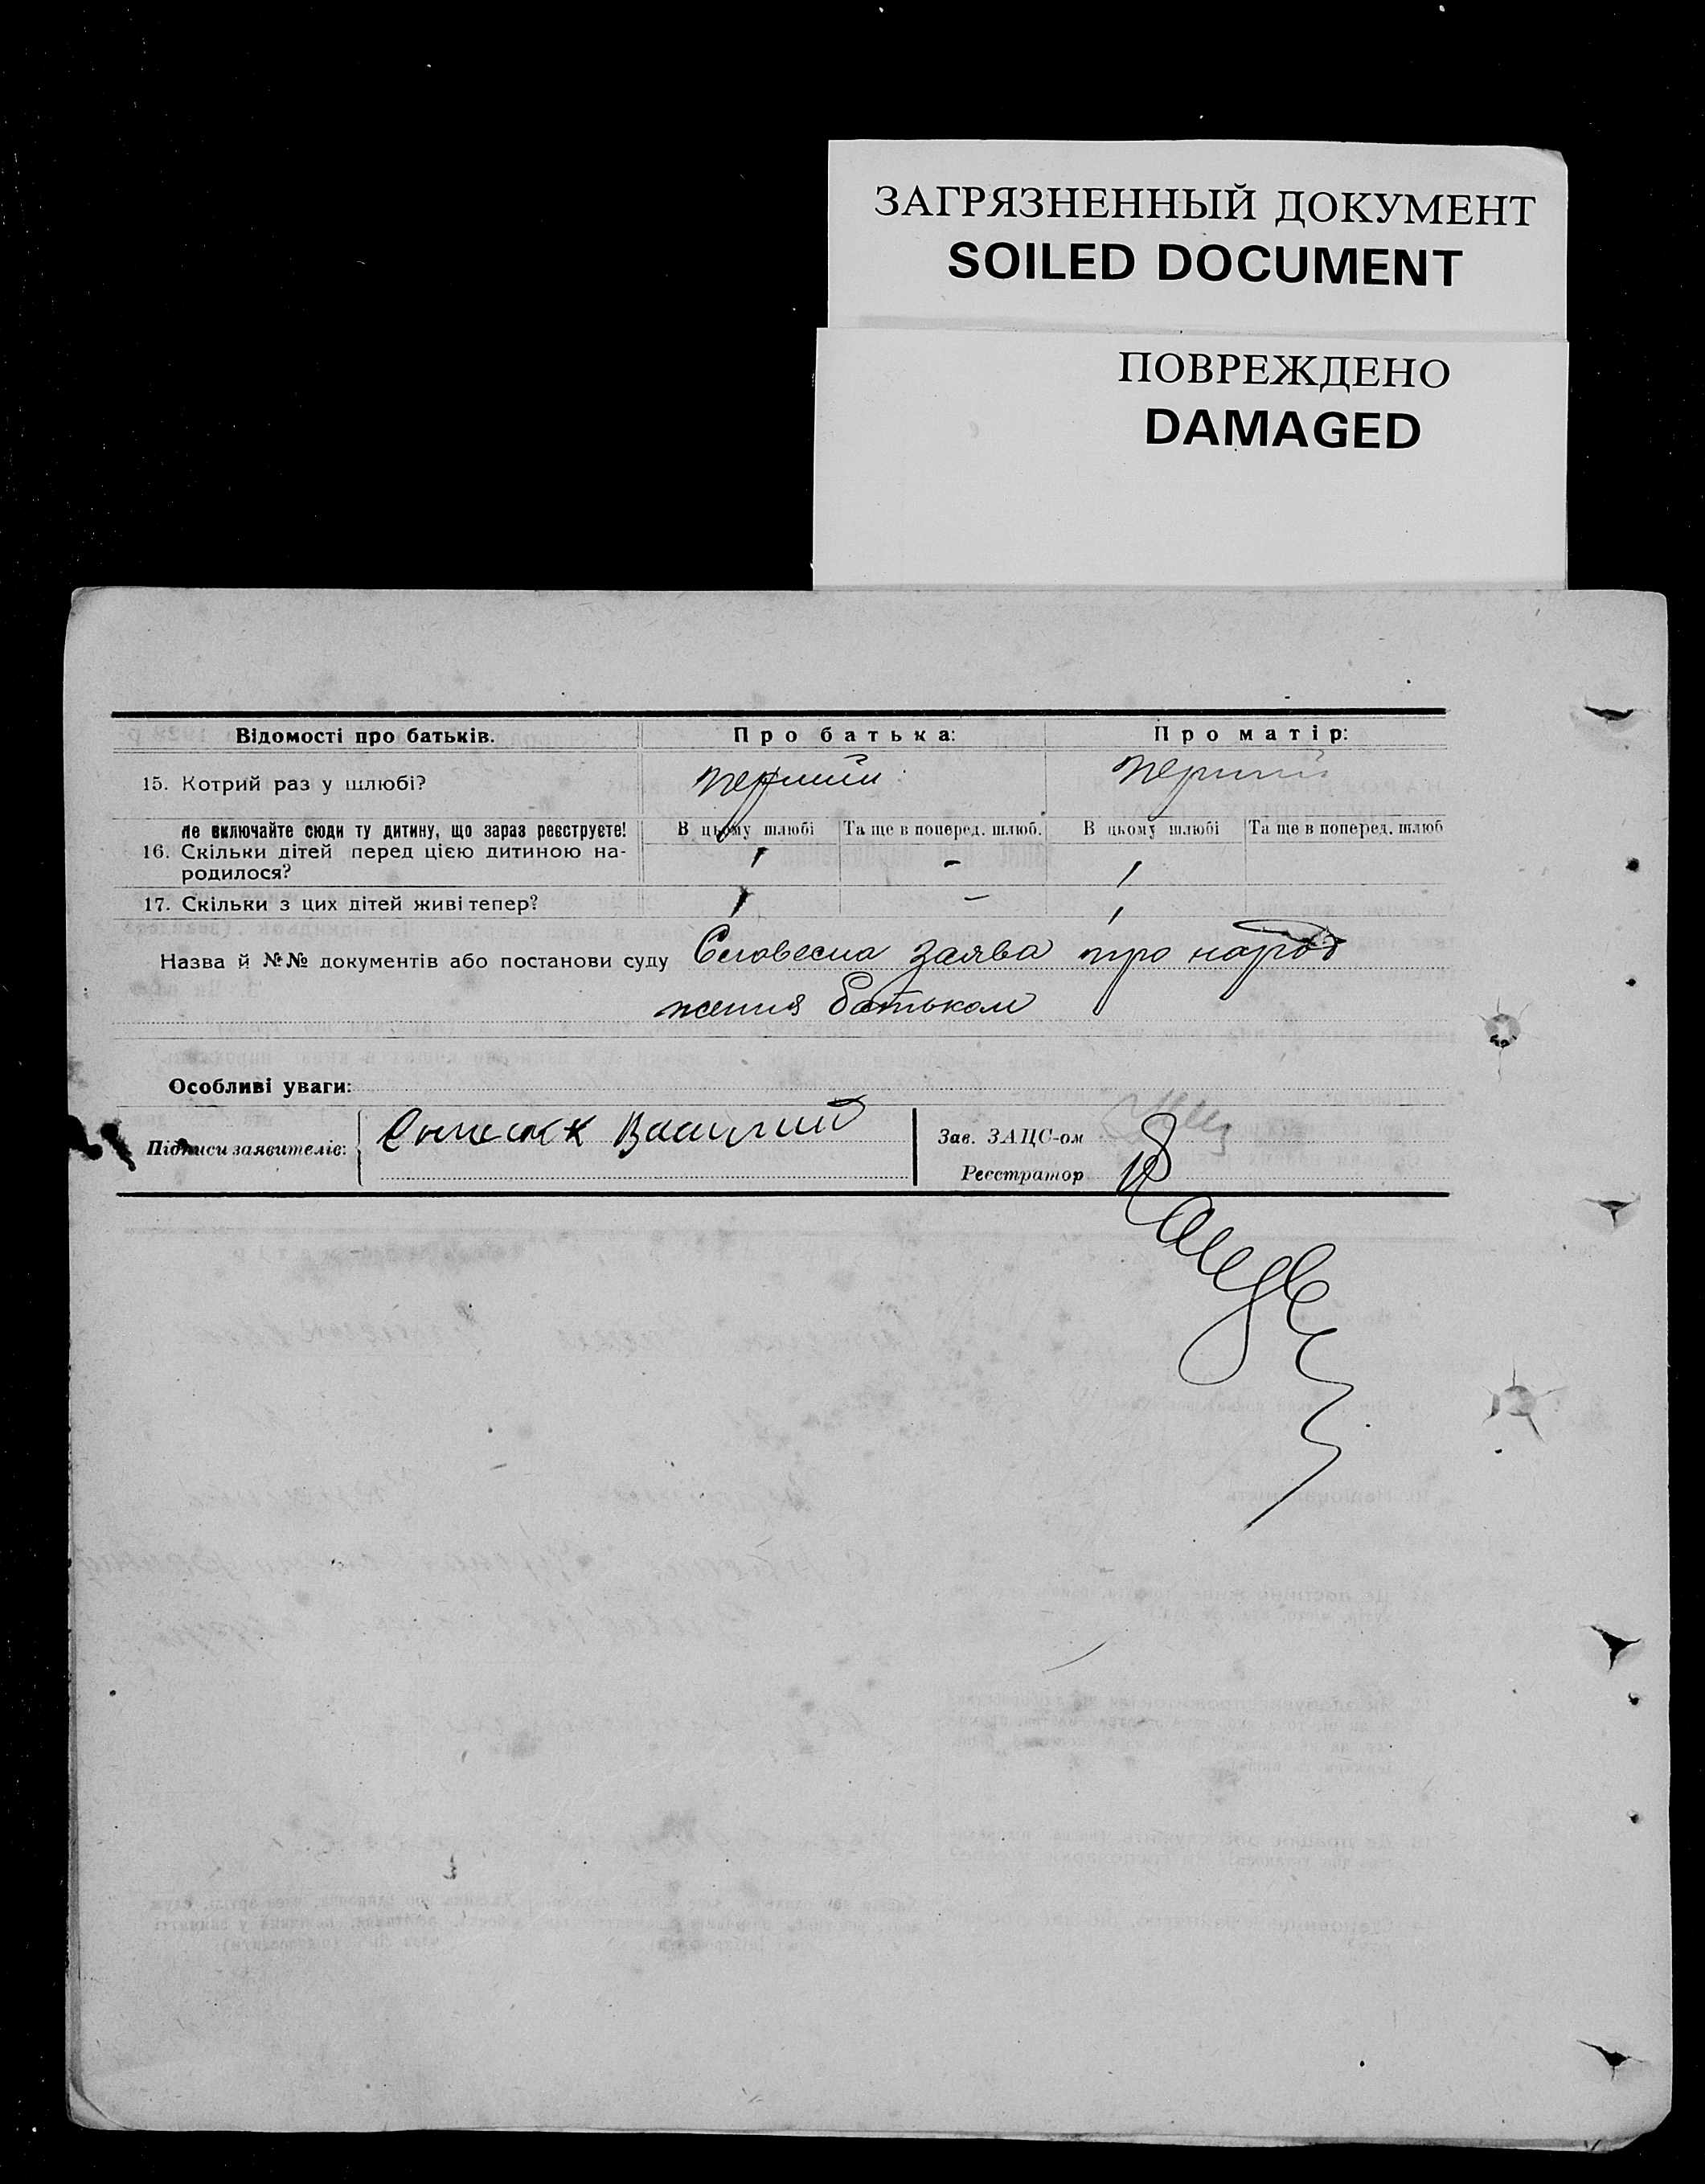 ЗАГРЯЗНЕННЫЙ ДОКУМЕНТ
SOILED DOCUMENT
ПОВРЕЖДЕНО
DAMAGED
Відомості про батьків. Про батька: Про матір:
15. Котрий раз у шлюбі? перший перший
Не включайте сюди ту дитину, що зараз реєструєте! В цьому шлюбі Та ще в поперед. шлюб. В цьому шлюбі Та ще в поперед. шлюб
16. Скільки дітей перед цією дитиною на-
родилося? 1 - 1
17. Скільки з цих дітей живі тепер? 1 - 1
Назва й №№ документів або постанови суду Словесна заява про народ
ження батьком
Особливі уваги:
Підписи заявителів: Василий
Зав. ЗАЦС-ом
Реєстратор